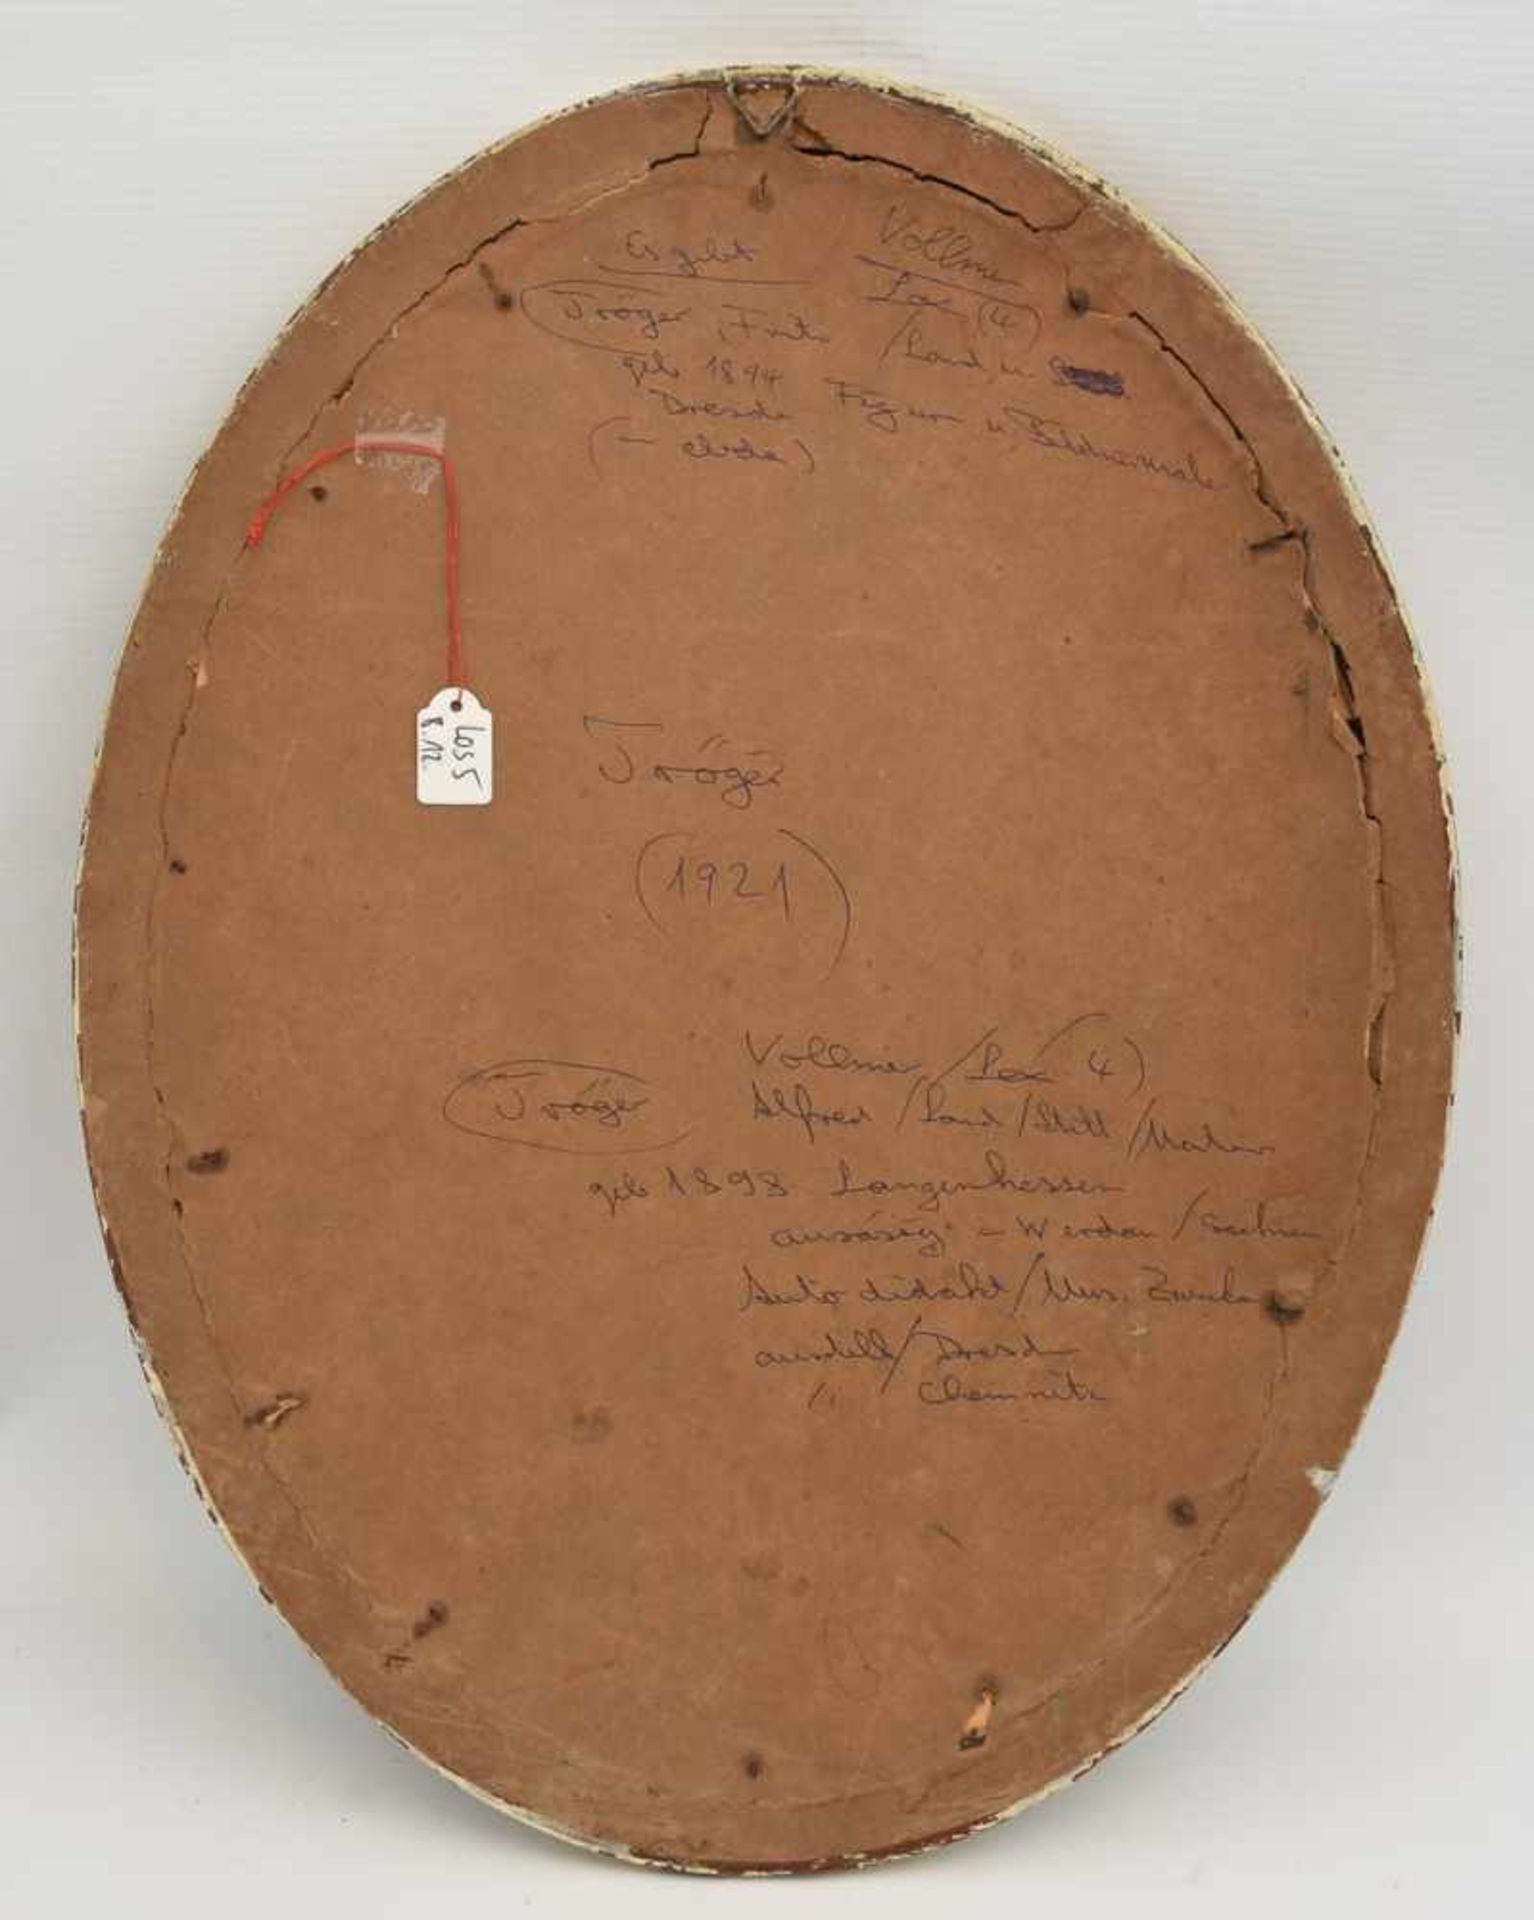 Es gibt
Vollmer
Lex (4)
Tröger, Fritz / Land, u.
geb 1894 Figur u.
Dresde
(– ebda)
LOS 5
8.12.
Tröger
(1921)
Vollmer / Lex 4)
Tröger Alfred / Land / Still /
geb 1898 Langenhessen
ansässig – Werdau / Sachsen
Autodidakt / Mus. Zwickau
ausstell / Dresd
" Chemnitz